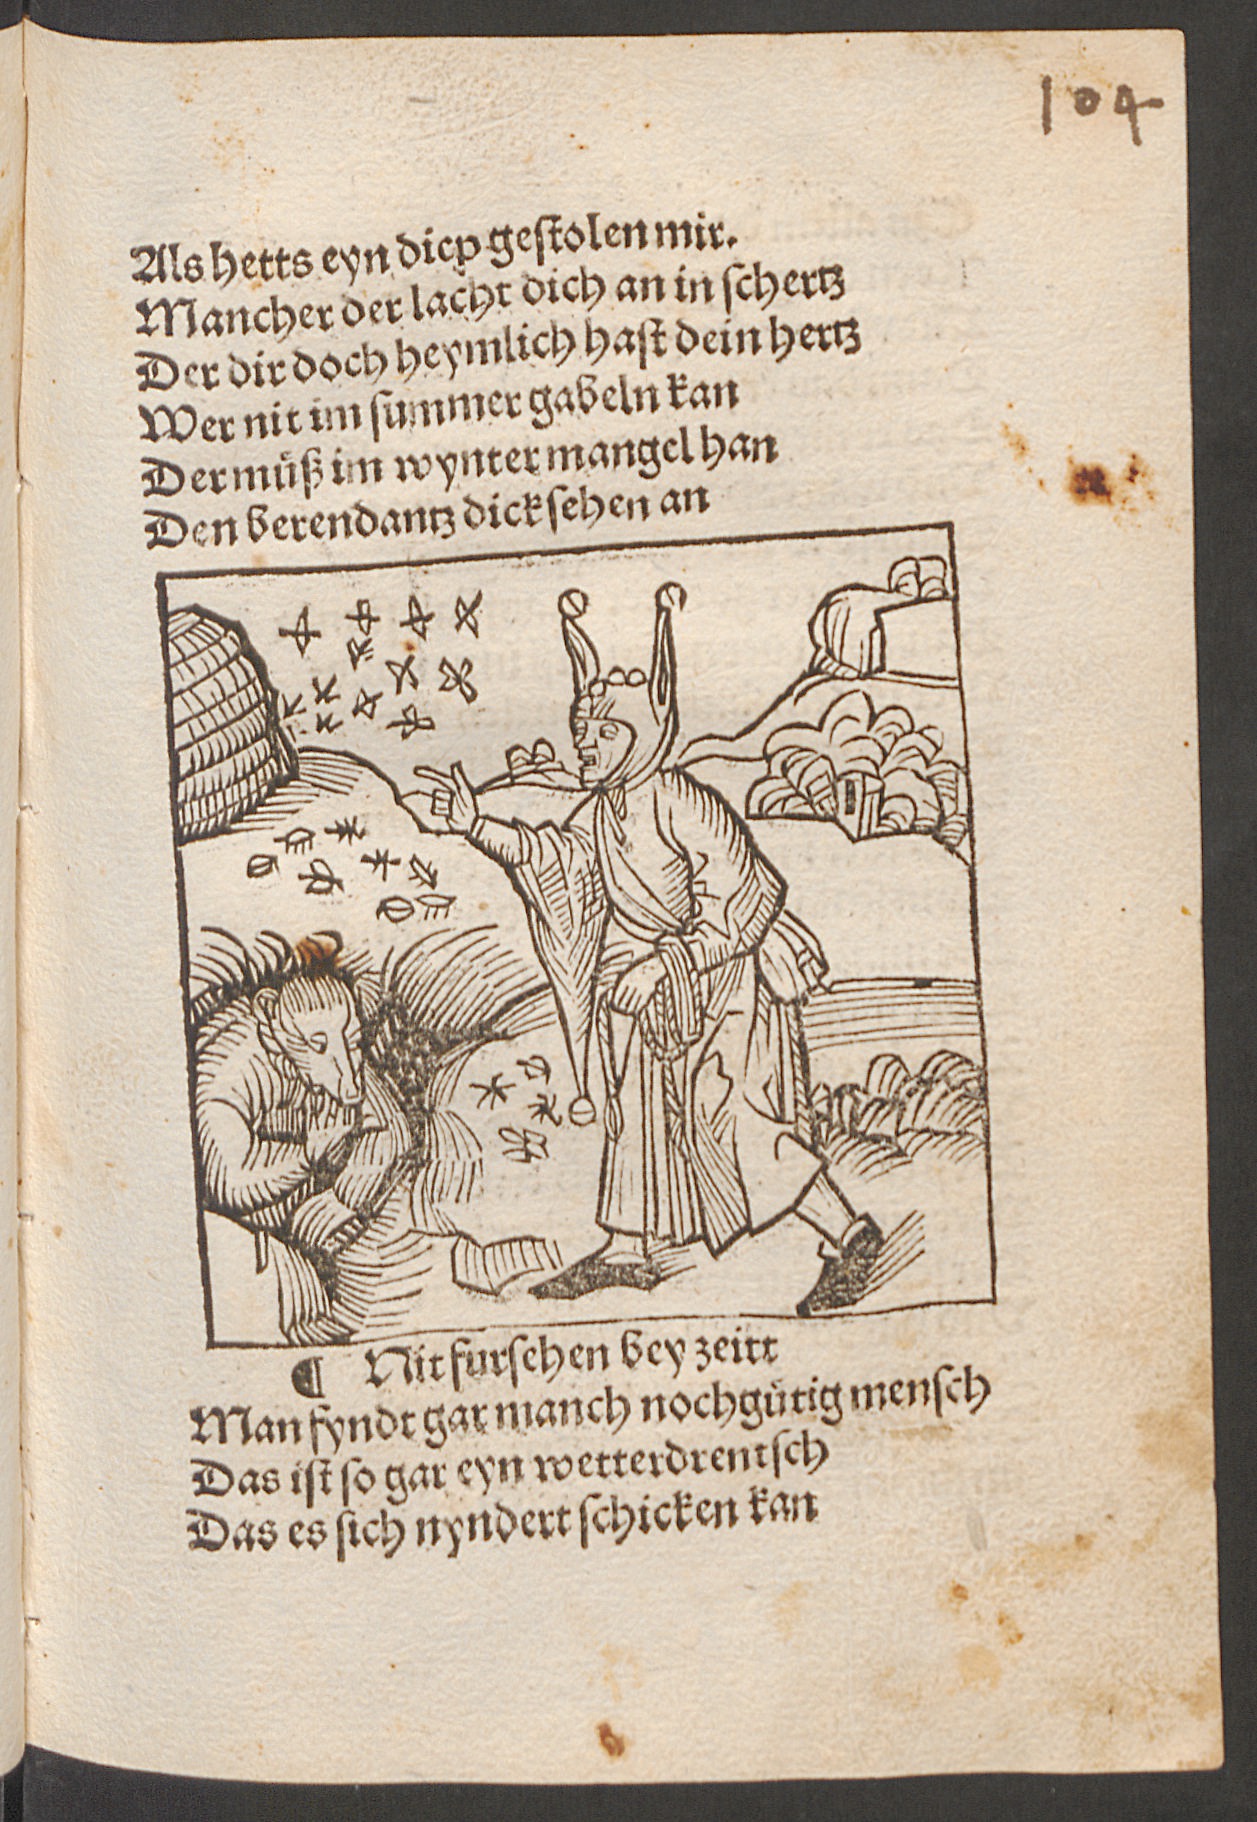 104
Als hetts eyn diep gestolen mir.
Mancher der lacht dich an in schertz
Der dir doch heymlich hast dein hertz
Wer nit im summer gabeln kan
Der müß im wynter mangel han
Den berendantz dick sehen an
¶ Nit fursehen bey zeitt
Man fyndt gar manch nochgütig mensch
Das ist so gar eyn wetterdrentsch
Das es sich nyndert schicken kan